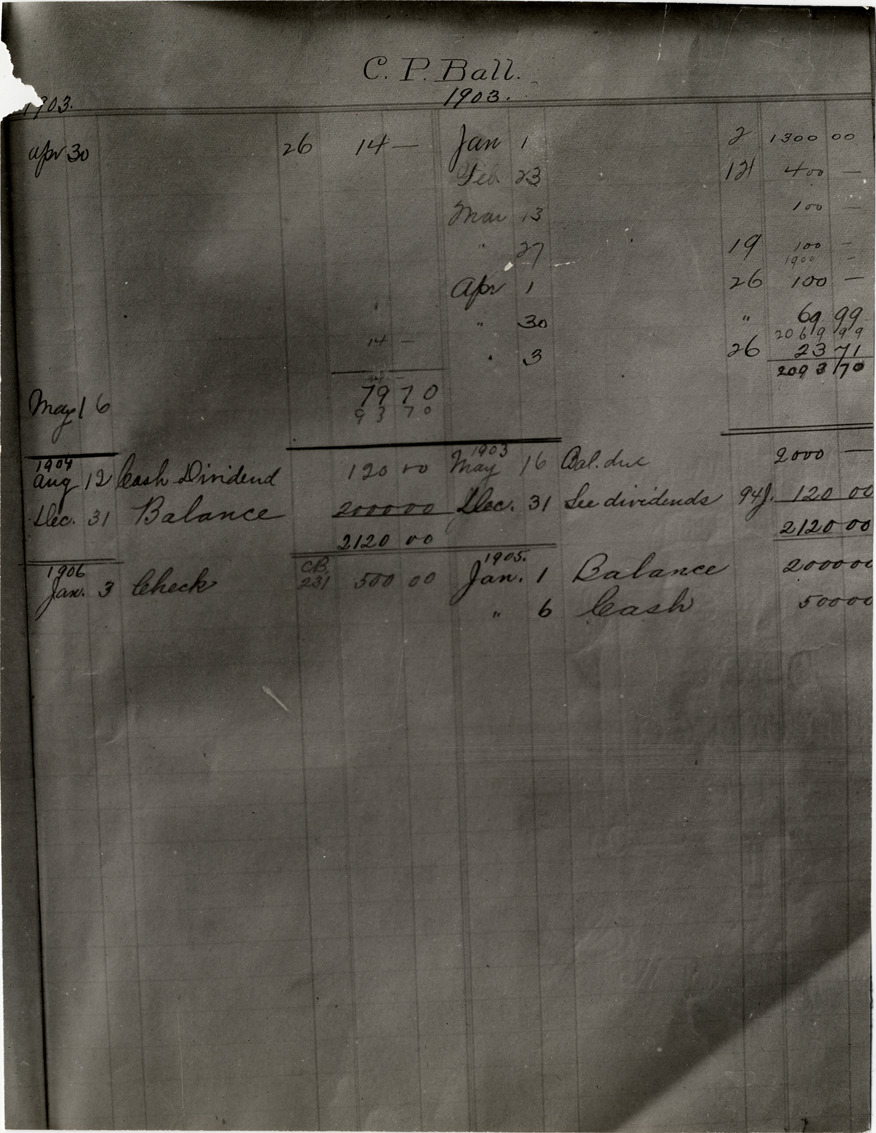 C. P. Ball.
1903. 1903.
Apr 30 26 14 — Jan 1 2 1300 00
Feb 23 12 400 —
Mar 13 100 —
" 27 19 100 —
1900 —
Apr 1 26 100 —
" 30 " 69 99
14 — 2069 99
" 3 26 23 71
2093 70
May 16 79 70
93 70
1904 1903
Aug 12 Cash Dividend 120 00 May 16 Bal. due 2000 —
Dec. 31 Balance 2000 00 Dec. 31 See dividends 94J. 120 00
2120 00 2120 00
1906 1905.
Jan. 3 Check CB 231 500 00 Jan. 1 Balance 2000 00
" 6 Cash 500 00